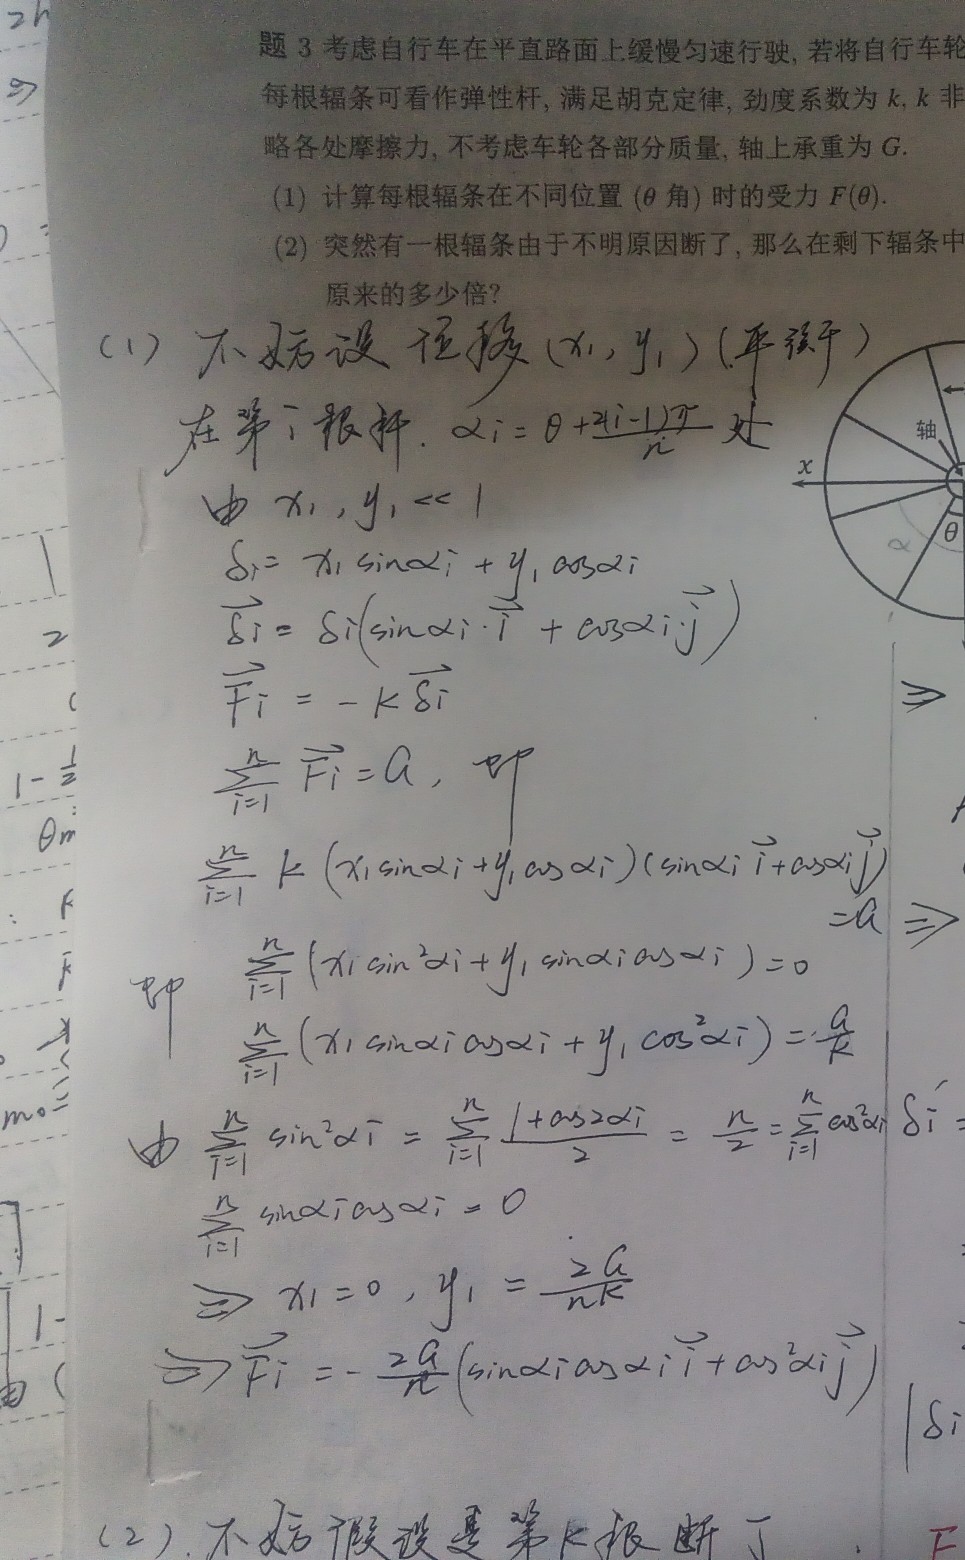 题 3 考虑自行车在平直路面上缓慢匀速行驶, 若将自行车轮
每根辐条可看作弹性杆, 满足胡克定律, 劲度系数为 k, k 非
略各处摩擦力, 不考虑车轮各部分质量, 轴上承重为 G.
(1) 计算每根辐条在不同位置 (θ 角) 时的受力 F(θ).
(2) 突然有一根辐条由于不明原因断了, 那么在剩下辐条中
原来的多少倍?
(1) 不妨设位移 (x₁, y₁)
在第i根杆. αi = θ + 2(i-1)π/n 处
由 x₁, y₁ << 1
δi = x₁ sinαi + y₁ cosαi
δi = δi(sinαi·i + cosαi·j)
Fi = -kδi
∑ⁿᵢ₌₁ Fi = G, 即
∑ⁿᵢ₌₁ k (x₁sinαi + y₁cosαi)(sinαi i + cosαi j)
= G
即 ∑ⁿᵢ₌₁ (x₁ sin²αi + y₁ sinαi cosαi) = 0
∑ⁿᵢ₌₁ (x₁ sinαi cosαi + y₁ cos²αi) = G/k
由 ∑ⁿᵢ₌₁ sin²αi = ∑ⁿᵢ₌₁ (1+cos2αi)/2 = n/2 = ∑ⁿᵢ₌₁ cos²αi
∑ⁿᵢ₌₁ sinαi cosαi = 0
⇒ x₁ = 0, y₁ = 2G/nk
⇒ Fi = -2G/n (sinαi cosαi i + cos²αi j)
(2). 不妨假设是第k根断了
轴
x
θ
α
⇒
⇒
δi' =
|δi
F
2h
⇒
2
1-½
θm
m₀=
1-
由 (